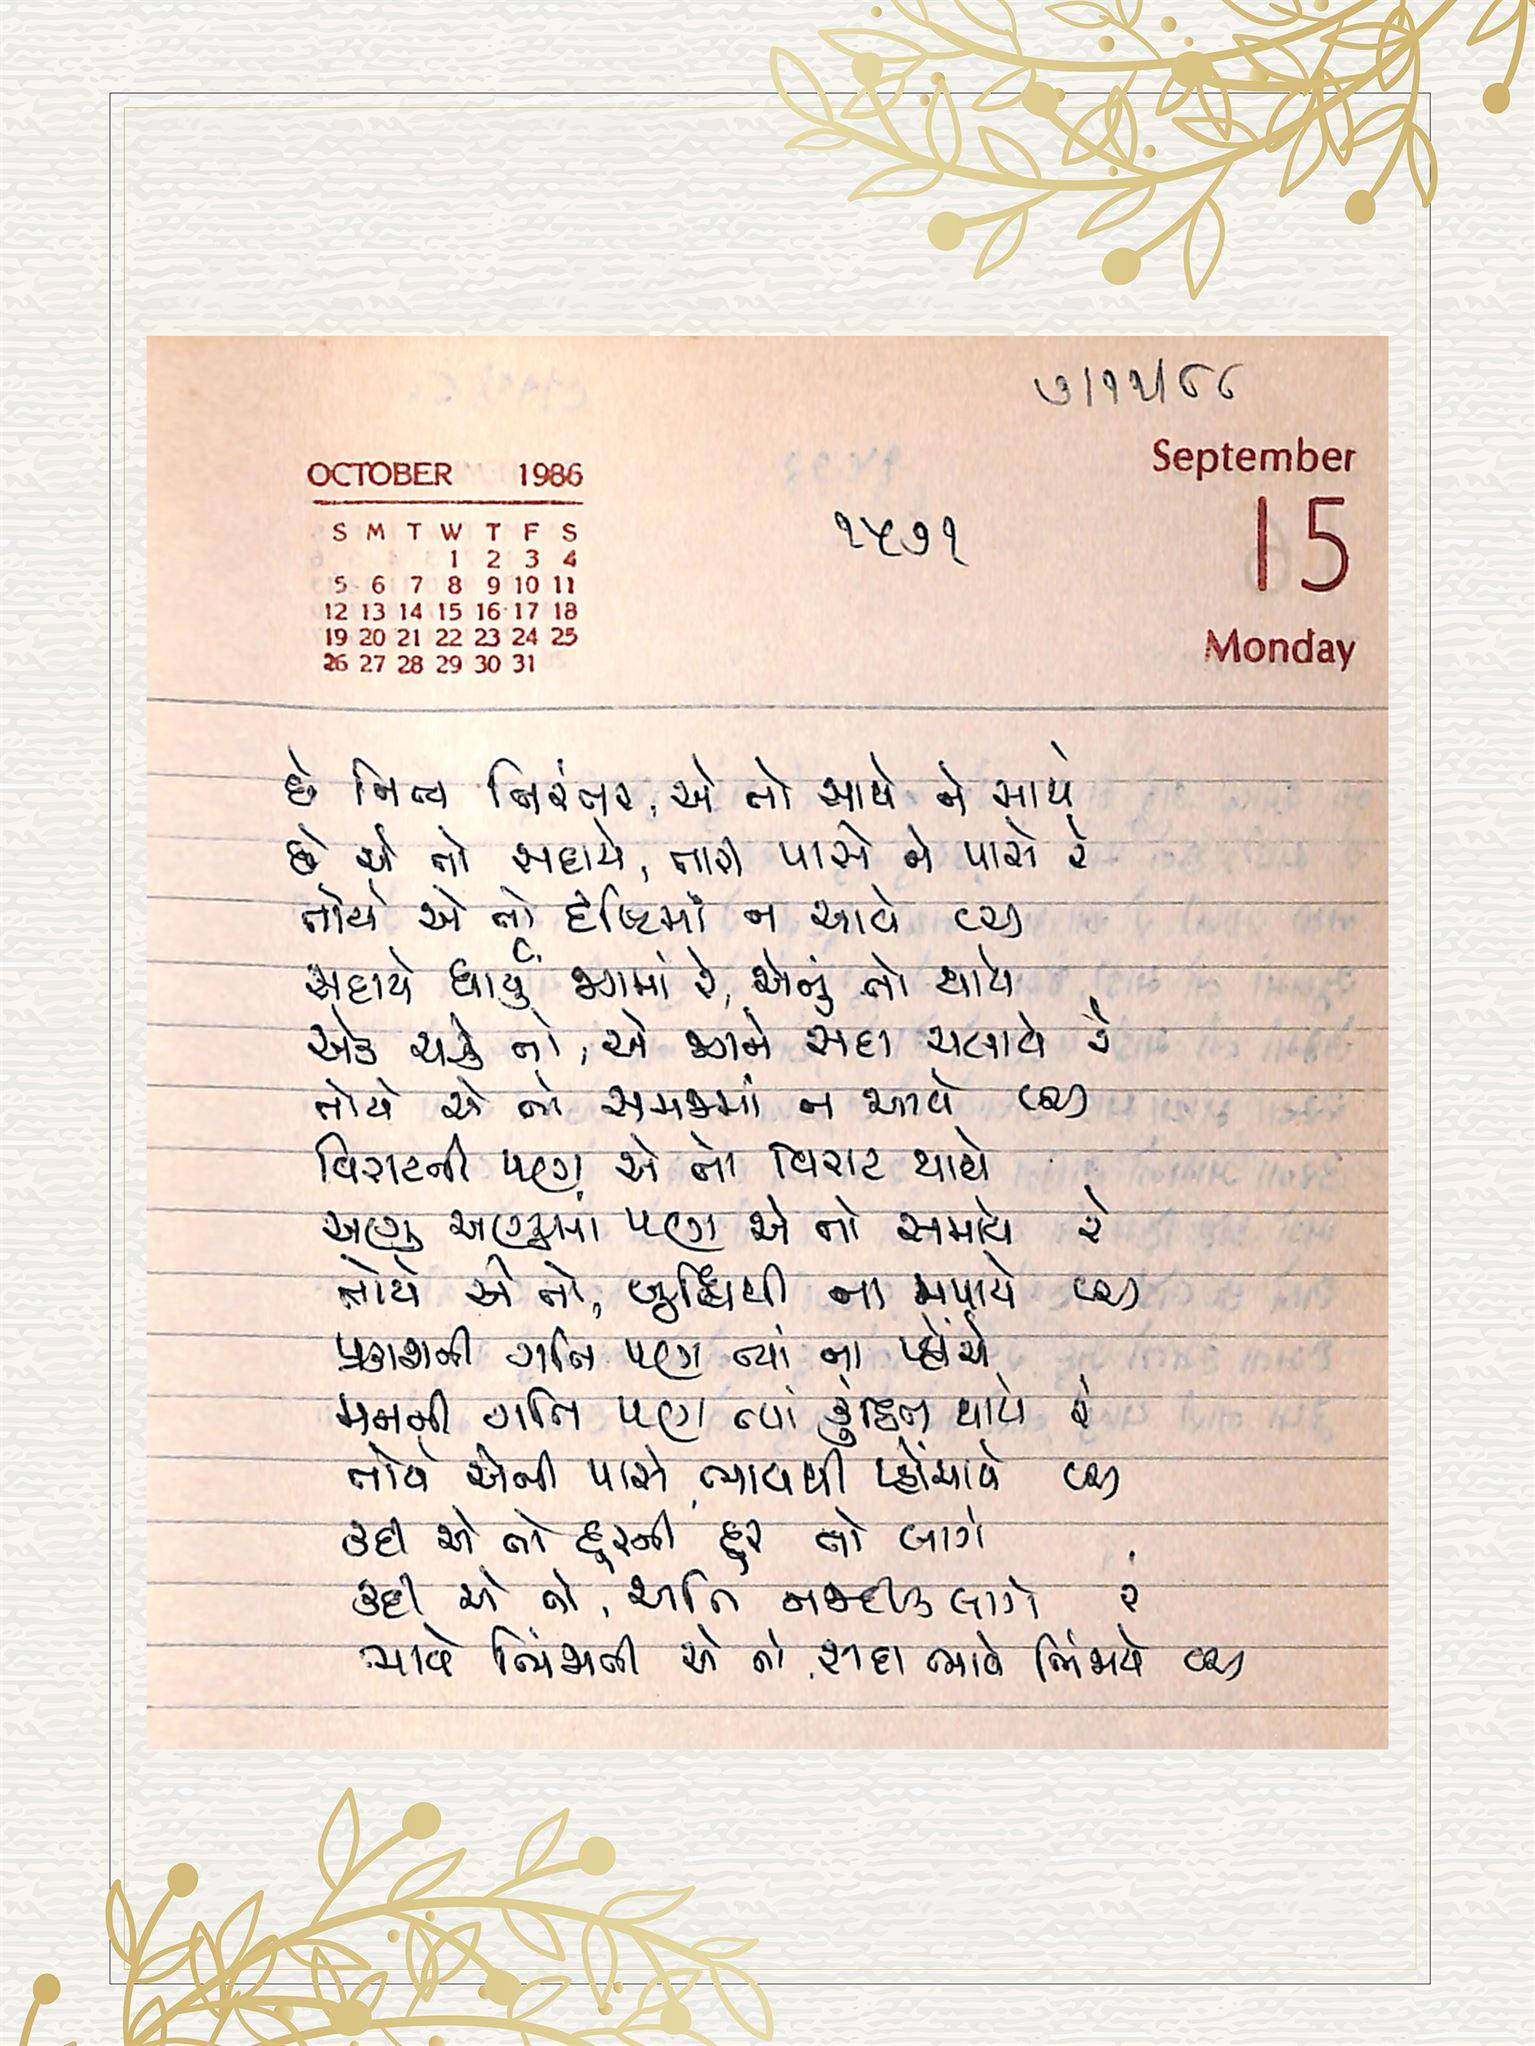 ૭/૧૧/૮૮
OCTOBER 1986
S M T W T F S
1 2 3 4
5 6 7 8 9 10 11
12 13 14 15 16 17 18
19 20 21 22 23 24 25
26 27 28 29 30 31
૧૫૭૧
September
15
Monday
છે નિત્ય નિરંતર, એ તો સાથે ને સાથે
છે એ તો સદાયે, તારી પાસે ને પાસે રે
તોયે એ તો દૃષ્ટિમાં ન આવે
સદાયે ધાર્યું જગમાં રે, એનું તો થાયે
એક ચક્રે તો, એ જગને સદા ચલાવે રે
તોયે એ તો સમજમાં ન આવે
વિરાટની પણ એ તો વિરાટ થાયે
અણુ અણુમાં પણ એ તો સમાયે રે
તોયે એ તો, બુદ્ધિથી ના મપાયે
પ્રકાશની ગતિ પણ ત્યાં ના પ્હોંચે
મનની ગતિ પણ ત્યાં કુંઠિત થાયે રે
તોયે એની પાસે ભાવથી પ્હોંચાયે
કદી એ તો દૂરની દૂર તો લાગે
કદી એ તો, અતિ નજદીક લાગે રે
ભાવે ભિંજાતી એ તો સદા ભાવે ભિંજાયે